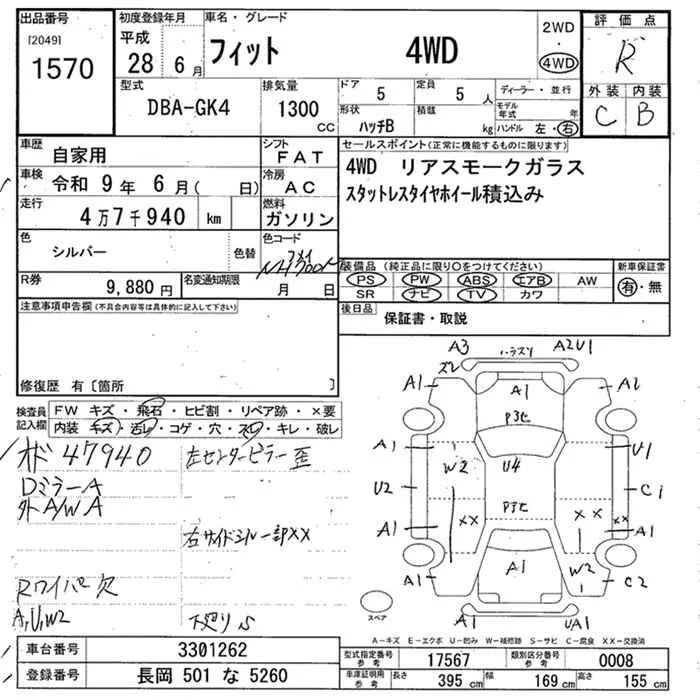 出品番号
[2049]
1570
初度登録年月
平成
28 6月
車名・グレード
フィット 4WD
2WD
4WD
評価点
R
外装 内装
C B
型式
DBA-GK4
排気量
1300
CC
ドア
5
定員
5 人
形状
ハッチB
積載
kg
ディーラー・並行
モデル年式 年
ハンドル 左・右
車歴
自家用
シフト
FAT
車検
令和 9年 6月( 日)
冷房
AC
走行
4万7千940 km
燃料
ガソリン
色
シルバー
色替
色コード
R券
9,880 円
名変通知期限
月 日
セールスポイント(正常に機能するものに限ります)
4WD リアスモークガラス
スタットレスタイヤホイール積込み
装備品(純正品に限り○をつけてください)
PS PW ABS エアB AW
SR ナビ TV カワ
新車保証書
有・無
後日品
保証書・取説
注意事項申告欄(不具合内容等は具体的に記入して下さい)
修復歴 有〔箇所 〕
検査員
記入欄
FW キズ・飛石・ヒビ割・リペア跡・×要
内装 キズ・汚レ・コゲ・穴・スレ・キレ・破レ
47940
左センターピラー歪
DミラーA
外A/W A
右サイドシル一部XX
Rワイパー欠
A,U,W2
A3
A2U1
A1
A1
A2
P3セ
A1
W2
U4
U1
U2
C1
P3セ
A1
XX
XX
XX
A1
A1
A1
W2
C2
スペア
A1
UA1
A-キズ E-エクボ U-凹み W-補修跡 S-サビ C-腐食 XX-交換済
車台番号
3301262
登録番号
長岡 501 な 5260
型式指定番号
参考
17567
類別区分番号
参考
0008
車庫証明用
参考
長さ 395 cm
幅 169 cm
高さ 155 cm